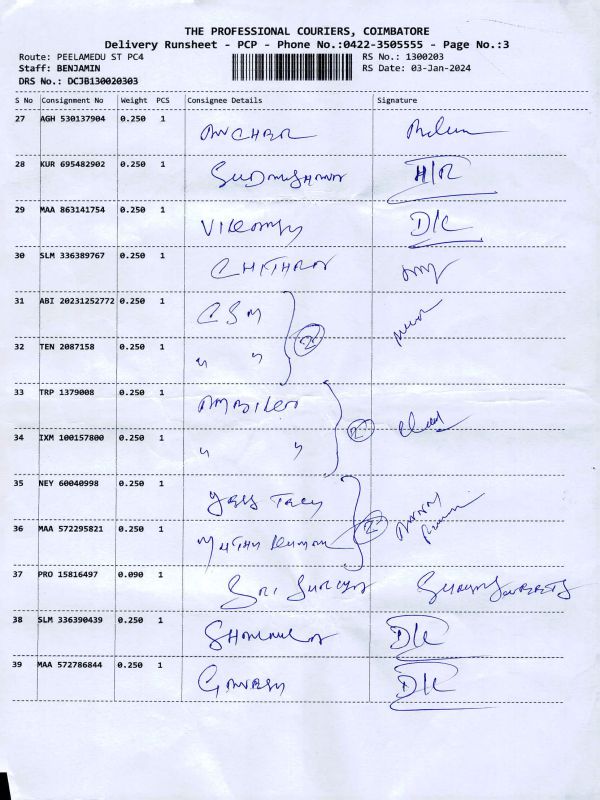 THE PROFESSIONAL COURIERS, COIMBATORE
Delivery Runsheet - PCP - Phone No.:0422-3505555 - Page No.:3
Route: PEELAMEDU ST PC4 RS No.: 1300203
Staff: BENJAMIN RS Date: 03-Jan-2024
DRS No.: DCJB130020303
S No Consignment No Weight PCS Consignee Details Signature
27 AGH 530137904 0.250 1
28 KUR 695482902 0.250 1 H/R
29 MAA 863141754 0.250 1 D/C
30 SLM 336389767 0.250 1
31 ABI 20231252772 0.250 1 CSM 2
32 TEN 2087158 0.250 1 " "
33 TRP 1379008 0.250 1 2
34 IXM 100157800 0.250 1 " "
35 NEY 60040998 0.250 1 2
36 MAA 572295821 0.250 1
37 PRO 15816497 0.090 1 Sri Surya
38 SLM 336390439 0.250 1 D/C
39 MAA 572786844 0.250 1 Ganesh D/C